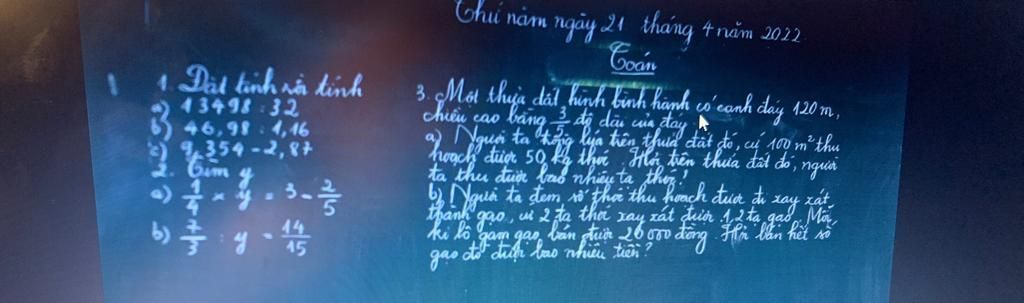 Thứ năm ngày 21 tháng 4 năm 2022
Toán
1. Đặt tính rồi tính
a) 13498 : 32
b) 46,98 : 1,16
c) 9,354 - 2,87
2. Tìm y
a) 1/4 × y = 3 - 2/5
b) 7/3 : y = 14/15
3. Một thửa đất hình bình hành có cạnh đáy 120 m,
chiều cao bằng 3/5 độ dài của đáy
a) Người ta trồng lúa trên thửa đất đó, cứ 100 m² thu
hoạch được 50 kg thóc. Hỏi trên thửa đất đó, người
ta thu được bao nhiêu tạ thóc?
b) Người ta đem số thóc thu hoạch được đi xay xát
thành gạo, cứ 2 tạ thóc xay xát được 1,2 tạ gạo. Mỗi
ki lô gam gạo bán được 26000 đồng. Hỏi bán hết số
gạo đó được bao nhiêu tiền?